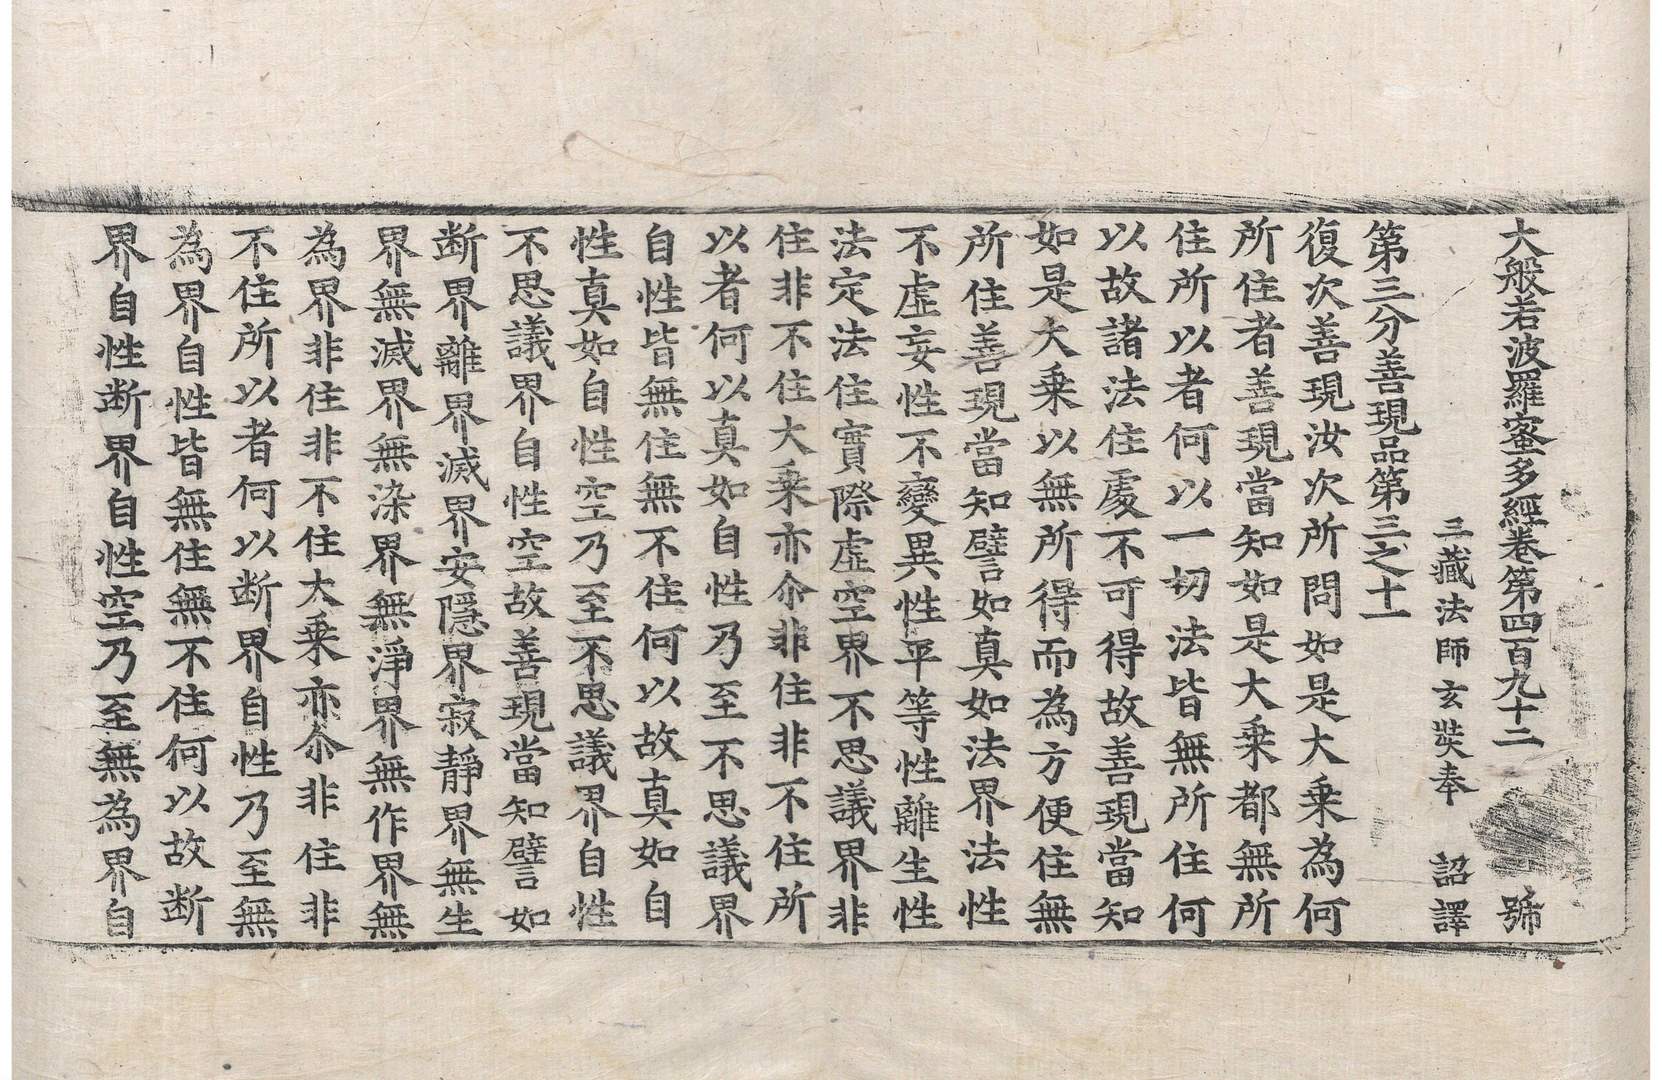 大般若波羅蜜多經卷第四百九十二 號
三藏法師玄奘奉 詔譯
第三分善現品第三之十一
復次善現汝次所問如是大乘為何
所住者善現當知如是大乘都無所
住所以者何以一切法皆無所住何
以故諸法住處不可得故善現當知
如是大乘以無所得而為方便住無
所住善現當知譬如真如法界法性
不虛妄性不變異性平等性離生性
法定法住實際虛空界不思議界非
住非不住大乘亦尒非住非不住所
以者何以真如自性乃至不思議界
自性皆無住無不住何以故真如自
性真如自性空乃至不思議界自性
不思議界自性空故善現當知譬如
断界離界滅界安隱界寂靜界無生
界無滅界無染界無淨界無作界無
為界非住非不住大乘亦尒非住非
不住所以者何以断界自性乃至無
為界自性皆無住無不住何以故断
界自性断界自性空乃至無為界自